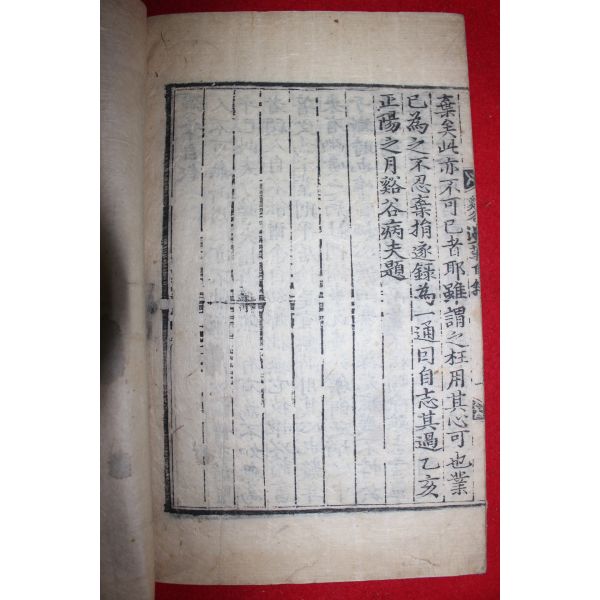 棄矣此亦不可已者耶雖謂之枉用其心可也業
已為之不忍棄捐逐錄為一通因自志其過乙亥
正陽之月谿谷病夫題